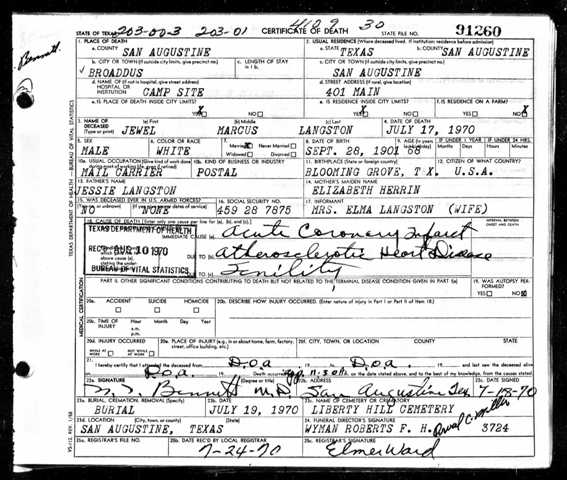 4109 30
STATE OF TEXAS 203-00-3 203-01 CERTIFICATE OF DEATH STATE FILE NO. 91260
Bennett
1. PLACE OF DEATH 2. USUAL RESIDENCE (Where deceased lived. If institution: residence before admission)
a. COUNTY SAN AUGUSTINE a. STATE TEXAS b. COUNTY SAN AUGUSTINE
b. CITY OR TOWN (If outside city limits, give precinct no.) c. LENGTH OF STAY in 1 b. c. CITY OR TOWN (If outside city limits, give precinct no.)
BROADDUS SAN AUGUSTINE
d. NAME OF (If not in hospital, give street address) HOSPITAL OR INSTITUTION CAMP SITE d. STREET ADDRESS (If rural, give location) 401 MAIN
e. IS PLACE OF DEATH INSIDE CITY LIMITS? YES X NO e. IS RESIDENCE INSIDE CITY LIMITS? YES X NO f. IS RESIDENCE ON A FARM? YES NO X
3. NAME OF DECEASED (Type or print) (a) First (b) Middle (c) Last 4. DATE OF DEATH
JEWEL MARCUS LANGSTON JULY 17, 1970
5. SEX 6. COLOR OR RACE 7. Married X Never Married Widowed Divorced 8. DATE OF BIRTH 9. AGE IF UNDER 1 YEAR IF UNDER 24 HRS.
MALE WHITE SEPT. 28, 1901 68 Months Days Hours Minutes
10a. USUAL OCCUPATION (Give kind of work done 10b. KIND OF BUSINESS OR INDUSTRY 11. BIRTHPLACE (State or foreign country) 12. CITIZEN OF WHAT COUNTRY?
MAIL CARRIER POSTAL BLOOMING GROVE, TX. U.S.A.
13. FATHER'S NAME 14. MOTHER'S MAIDEN NAME
JESSIE LANGSTON ELIZABETH HERRIN
15. WAS DECEASED EVER IN U.S. ARMED FORCES? 16. SOCIAL SECURITY NO. 17. INFORMANT
NO NONE 459 28 7875 MRS. ELMA LANGSTON (WIFE)
18. CAUSE OF DEATH INTERVAL BETWEEN ONSET AND DEATH
TEXAS DEPARTMENT OF HEALTH IMMEDIATE CAUSE (a) Acute Coronary Infarct
REC'D AUG 10 1970 DUE TO (b) Atherosclerotic Heart Disease
BUREAU OF VITAL STATISTICS DUE TO (c)
PART II. OTHER SIGNIFICANT CONDITIONS CONTRIBUTING TO DEATH BUT NOT RELATED TO THE TERMINAL DISEASE CONDITION GIVEN IN PART I(a) 19. WAS AUTOPSY PERFORMED? YES NO X
20a. ACCIDENT SUICIDE HOMICIDE 20b. DESCRIBE HOW INJURY OCCURRED. (Enter nature of injury in Part I or Part II of item 18.)
20c. TIME OF INJURY Hour Month Day Year a.m. p.m.
20d. INJURY OCCURRED WHILE AT WORK NOT WHILE AT WORK 20e. PLACE OF INJURY (e.g. in or about home, farm, factory, street, office building, etc.) 20f. CITY, TOWN, OR LOCATION COUNTY STATE
21. I hereby certify that I attended the deceased from D.O.A. 19 to D.O.A. 19 and last saw the deceased alive
on D.O.A. Death occurred at 11:30 m. on the date stated above, and to the best of my knowledge, from the causes stated.
22a. SIGNATURE (Degree or title) 22b. ADDRESS 22c. DATE SIGNED
Bennett M.D. San Augustine Tex 7-18-70
23a. BURIAL, CREMATION, REMOVAL (Specify) 23b. DATE 23c. NAME OF CEMETERY OR CREMATORY
BURIAL JULY 19, 1970 LIBERTY HILL CEMETERY
23d. LOCATION (City, town, or county) (State) 24. FUNERAL DIRECTOR'S SIGNATURE
SAN AUGUSTINE, TEXAS WYMAN ROBERTS F. H. C. Miller 3724
25a. REGISTRAR'S FILE NO. 25b. DATE REC'D BY LOCAL REGISTRAR 25c. REGISTRAR'S SIGNATURE
7-24-70 Elmer Ward
TEXAS DEPARTMENT OF HEALTH - BUREAU OF VITAL STATISTICS
MEDICAL CERTIFICATION